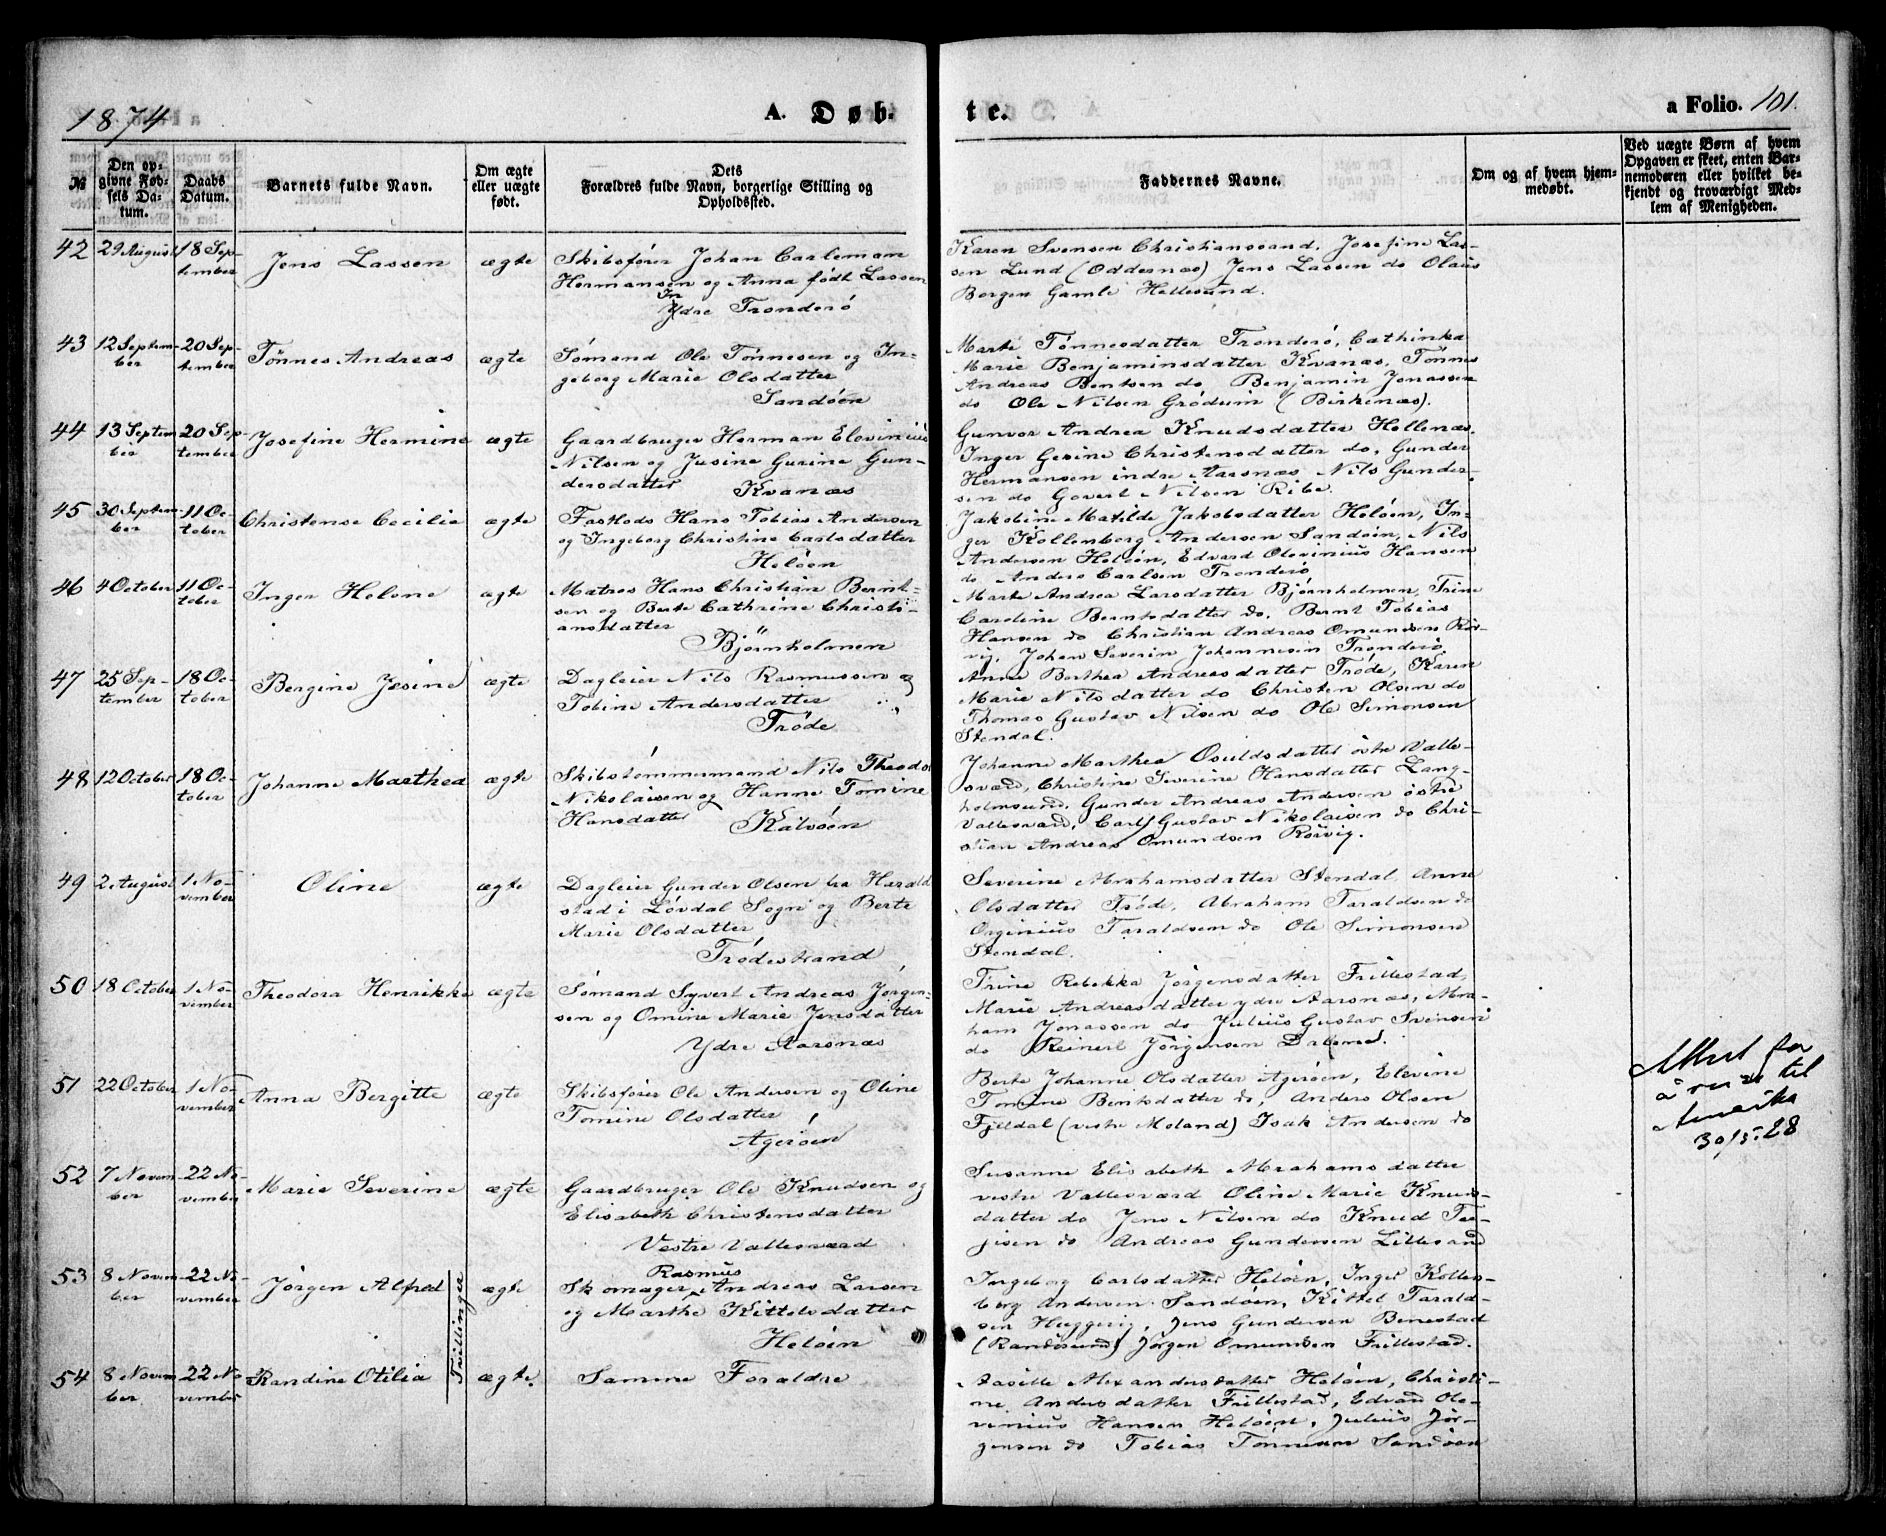 1874
A. Døb-
te.
a Folio. 101.
№
Den op-
givne Fød-
sels Da-
tum.
Daabs
Datum.
Barnets fulde Navn.
Om ægte
eller uægte
født.
Dets
Forældres fulde Navn, borgerlige Stilling og
Opholdssted.
Faddernes Navne.
Om og af hvem hjem-
medøbt.
Ved uægte Børn af hvem
Opgaven er skeet, enten Bar-
nemoderen eller hvilket be-
kjendt og troværdigt Med-
lem af Menigheden.
42
29 August
18 Sep-
tember
Jens Lassen
ægte
Skibsfører Johan Carleman
Hermansen og Anna født Lassen
Ydre Tronderö
Karen Svensen Christianssand. Josefine Las-
sen Lund (Oddernæs) Jens Lassen do Olaus
Bergen Gamle Hellesund.
43
12 Septem-
ber
20 Sep-
tember
Tönnes Andreas
ægte
Sømand Ole Tönnesen og In-
geborg Marie Olsdatter
Sandöen
Marte Tönnesdatter Tronderö, Cathinka
Marie Benjaminsdatter Kvanæs, Tönnes
Andreas Bentsen do, Benjamin Jonassen
do Ole Nilsen Grödum (Birkenæs).
44
13 Septem
ber
20 Sep
tember
Josefine Hermine
ægte
Gaardbruger Herman Elevinius
Nilsen og Jusine Gurine Gun-
dersdatter
Kvanæs
Gunvor Andrea Knudsdatter Hellenæs.
Inger Gesine Christensdatter do, Gunder
Hermansen indre Aarsnæs, Nils Gunder-
sen do Govert Nilsen Ribe.
45
30 Septem-
ber
11 Oc-
tober
Christense Cecilie
ægte
Fastlods Hans Tobias Andersen
og Ingeborg Christine Carlsdatter
Helöen
Jakobine Matilde Jakobsdatter Helöen, In-
ger Kollenberg Andersen Sandöen, Nils
Andersen Helöen, Edvard Olevinius Hansen
do, Anders Carlsen Tronderö
46
4 October
11 Oc-
tober
Inger Helene
ægte
Matros Hans Christian Bernt-
sen og Berte Cathrine Christi-
ansdatter
Björnholmen
Marte Andrea Larsdatter Björnholmen, Trine
Caroline Berntsdatter do, Bernt Tobias
Hansen do Christian Andreas Omundsen Rör-
vig, Johan Severin Johannesen Tronderö.
47
25 Sep-
tember
18 Oc-
tober
Bergine Jesine
ægte
Dagleier Nils Rasmussen og
Tobine Andersdatter
Tröde
Anne Berthea Andreasdatter Tröde, Karen
Marie Nilsdatter do Christen Olsen do
Thomas Gustav Nilsen do Ole Simonsen
Stendal.
48
12 October
18 Oc-
tober
Johanne Marthea
ægte
Skibstömmermand Nils Theodor
Nikolaisen og Hanne Tomine
Hansdatter
Kalvöen
Johanne Marthea Osuldsdatter östre Valle-
sværd, Christine Severine Hansdatter Lang-
holmsund. Gunder Andreas Andersen östre
Vallesværd, Carl Gustav Nikolaisen do Chri-
stian Andreas Omundsen Rörvig.
49
2 August
1 No-
vember
Oline
ægte
Dagleier Gunder Olsen fra Harald
stad i Lövdal Sogn og Berte
Marie Olsdatter
Trödestrand
Severine Abrahamsdatter Stendal, Anne
Olsdatter Tröde, Abraham Taraldsen do
Orginius Taraldsen do Ole Simonsen
Stendal.
50
18 October
1 No-
vember
Theodora Henrikke
ægte
Sömand Syvert Andreas Jörgen-
sen og Omine Marie Jensdatter
Ydre Aarsnæs
Trine Rebekka Jörgensdatter Frillestad
Marie Andreasdatter ydre Aarsnæs, Abra-
ham Jonassen do Julius Gustav Svensen
do Reinert Jörgensen Dalene.
51
22 October
1 No-
vember
Anna Bergitte
ægte
Skibsförer Ole Andersen og Oline
Tomine Olsdatter
Ageröen
Berte Johanne Olsdatter Ageröen, Elevine
Tomine Bentsdatter do, Anders Olsen
Fjeldal (vestre Moland) Isak Andersen do
Attest for
å reise til
Amerika
30/5.28
52
7 Novem
ber
22 No-
vember
Marie Severine
ægte
Gaardbruger Ole Knudsen og
Elisabeth Christensdatter
Vestre Vallesværd
Susanne Elisabeth Abrahamsdatter
vestre Vallesværd Oline Marie Knuds-
datter do Jens Nilsen do Knud Ter-
jesen do Andreas Gundersen Lillesand
53
8 Novem
ber
22 No-
vember
Jörgen Alfred
Tvillinger
ægte
Rasmus
Skomager Andreas Larsen
og Marthe Kittelsdatter
Helöen
Ingeborg Carlsdatter Helöen, Inger Kollen-
berg Andersen Sandöen, Kittel Tarald-
sen Heggerig, Jens Gundersen Benestad
(Randösund) Jörgen Omundsen Frillestad.
54
8 Novem
ber
22 No-
vember
Randine Otilia
ægte.
Samme Foraldre
Alexandersdatter Helöen, Christi-
ne Andersdatter Frillestad, Edvard Ole-
vinius Hansen Helöen, Julius Jör-
gensen do Tobias Tönnesen Sandöen